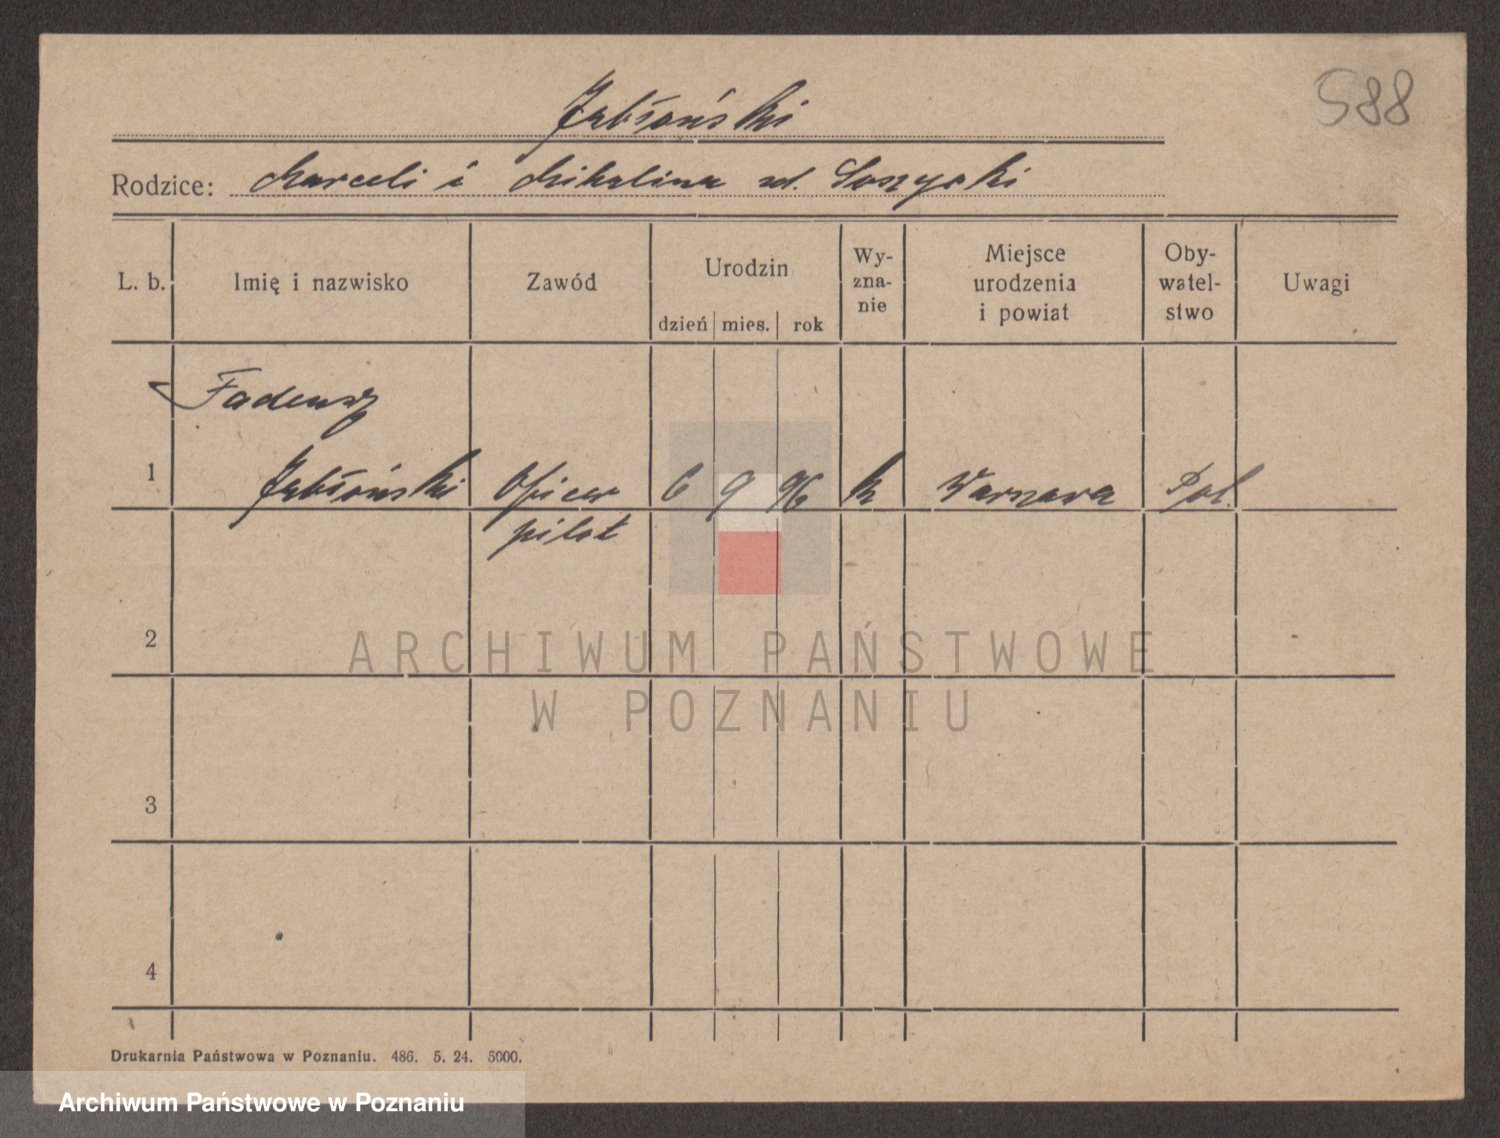 588
Jabłoński
Rodzice: Marceli i Mikalina zd.
L. b. Imię i nazwisko Zawód Urodzin dzień mies. rok Wy-zna-nie Miejsce urodzenia i powiat Oby-watel-stwo Uwagi
Tadeusz
1 Jabłoński Oficer 6 9 96 k Warszawa Pol.
pilot
2
ARCHIWUM PAŃSTWOWE
W POZNANIU
3
4
Drukarnia Państwowa w Poznaniu. 486. 5. 24. 5000.
Archiwum Państwowe w Poznaniu